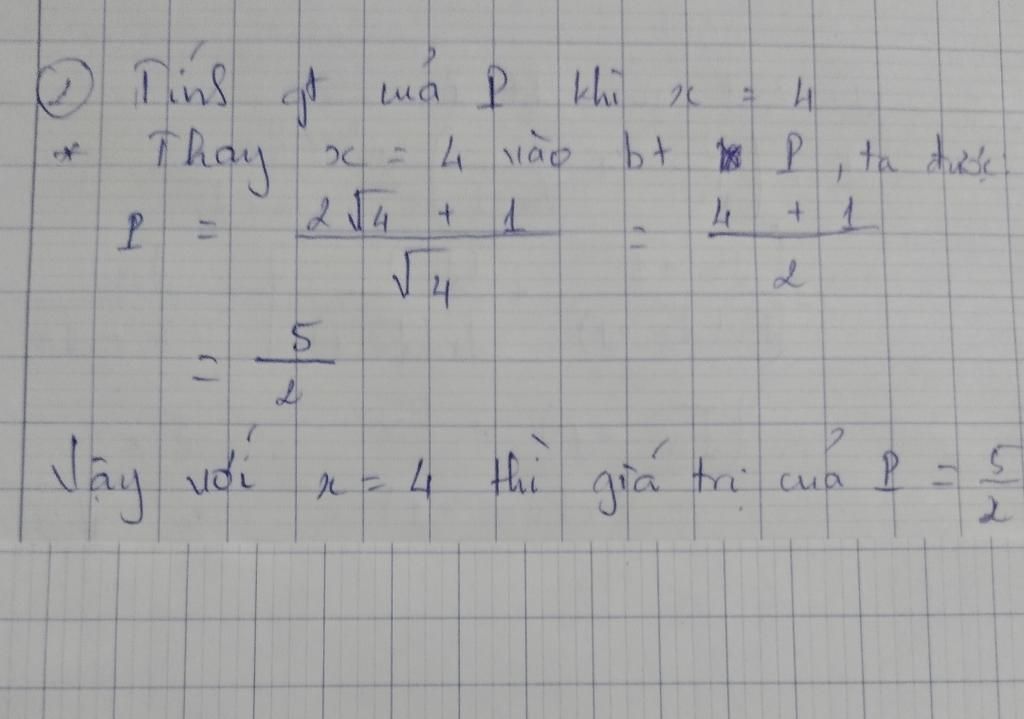 ① Tính gt của P khi x = 4
* Thay x = 4 vào bt P, ta được
P = (2√4 + 1)/√4 = (4 + 1)/2
= 5/2
Vậy với x = 4 thì giá trị của P = 5/2